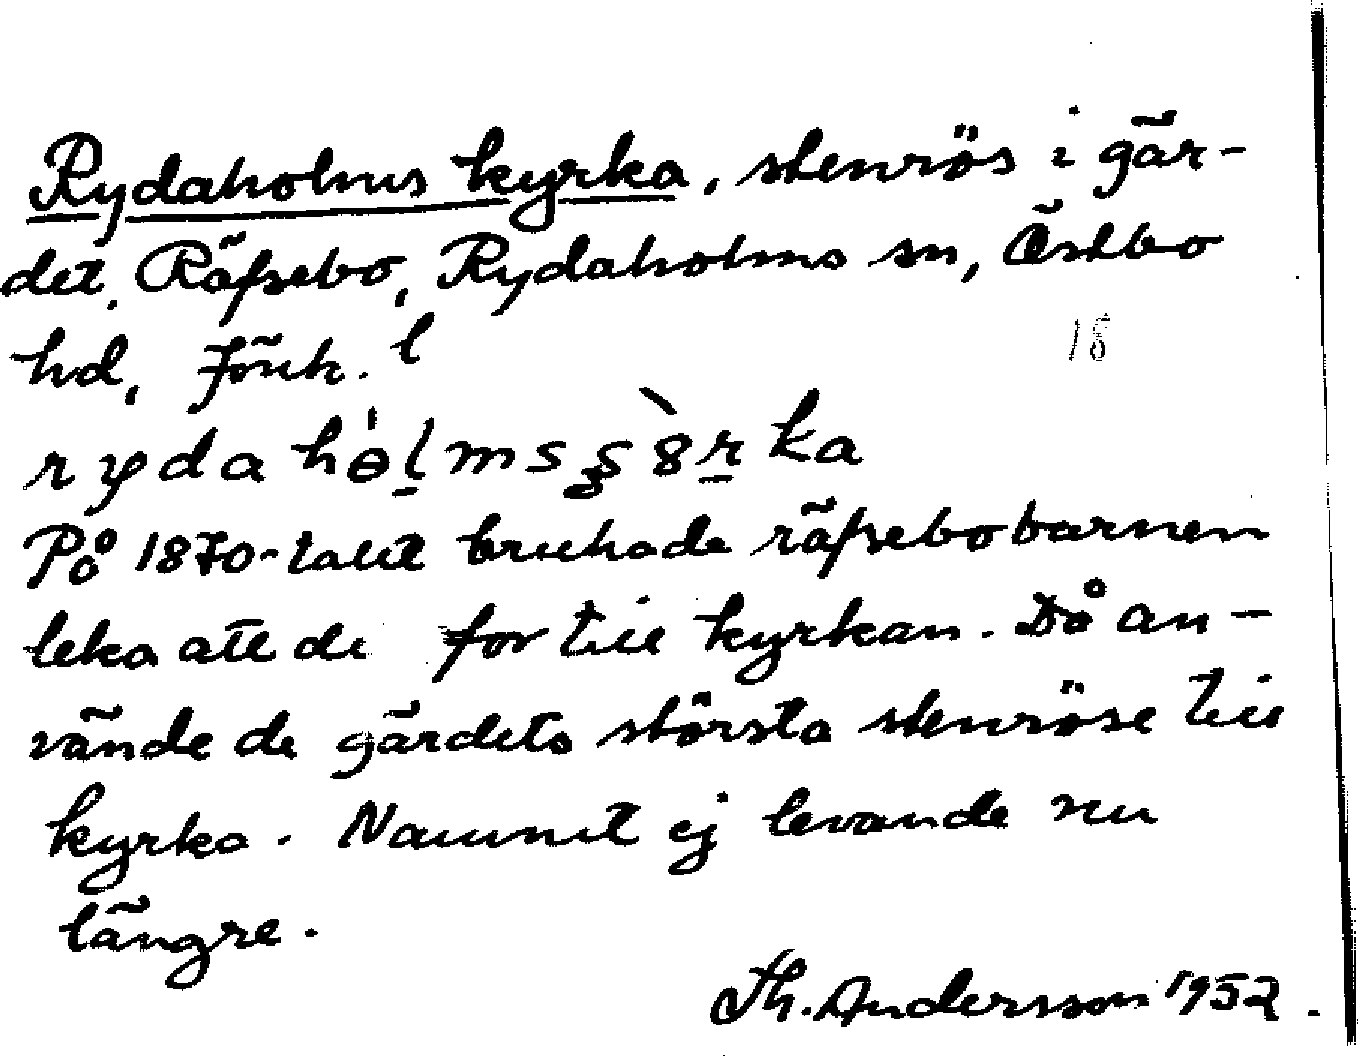 Rydaholms kyrka, stenrös i gär-
det, Räfsebo, Rydaholms sn, Östbo
hd, Jönk. l
18
rydahɵ̍l̠ms ʂ 8̀r̠ka
På 1870-talet brukade räfsebobarnen
leka att de for till kyrkan. Då an-
vände de gärdets största stenröse till
kyrka. Namnet ej levande nu
längre.
Th. Andersson 1952.